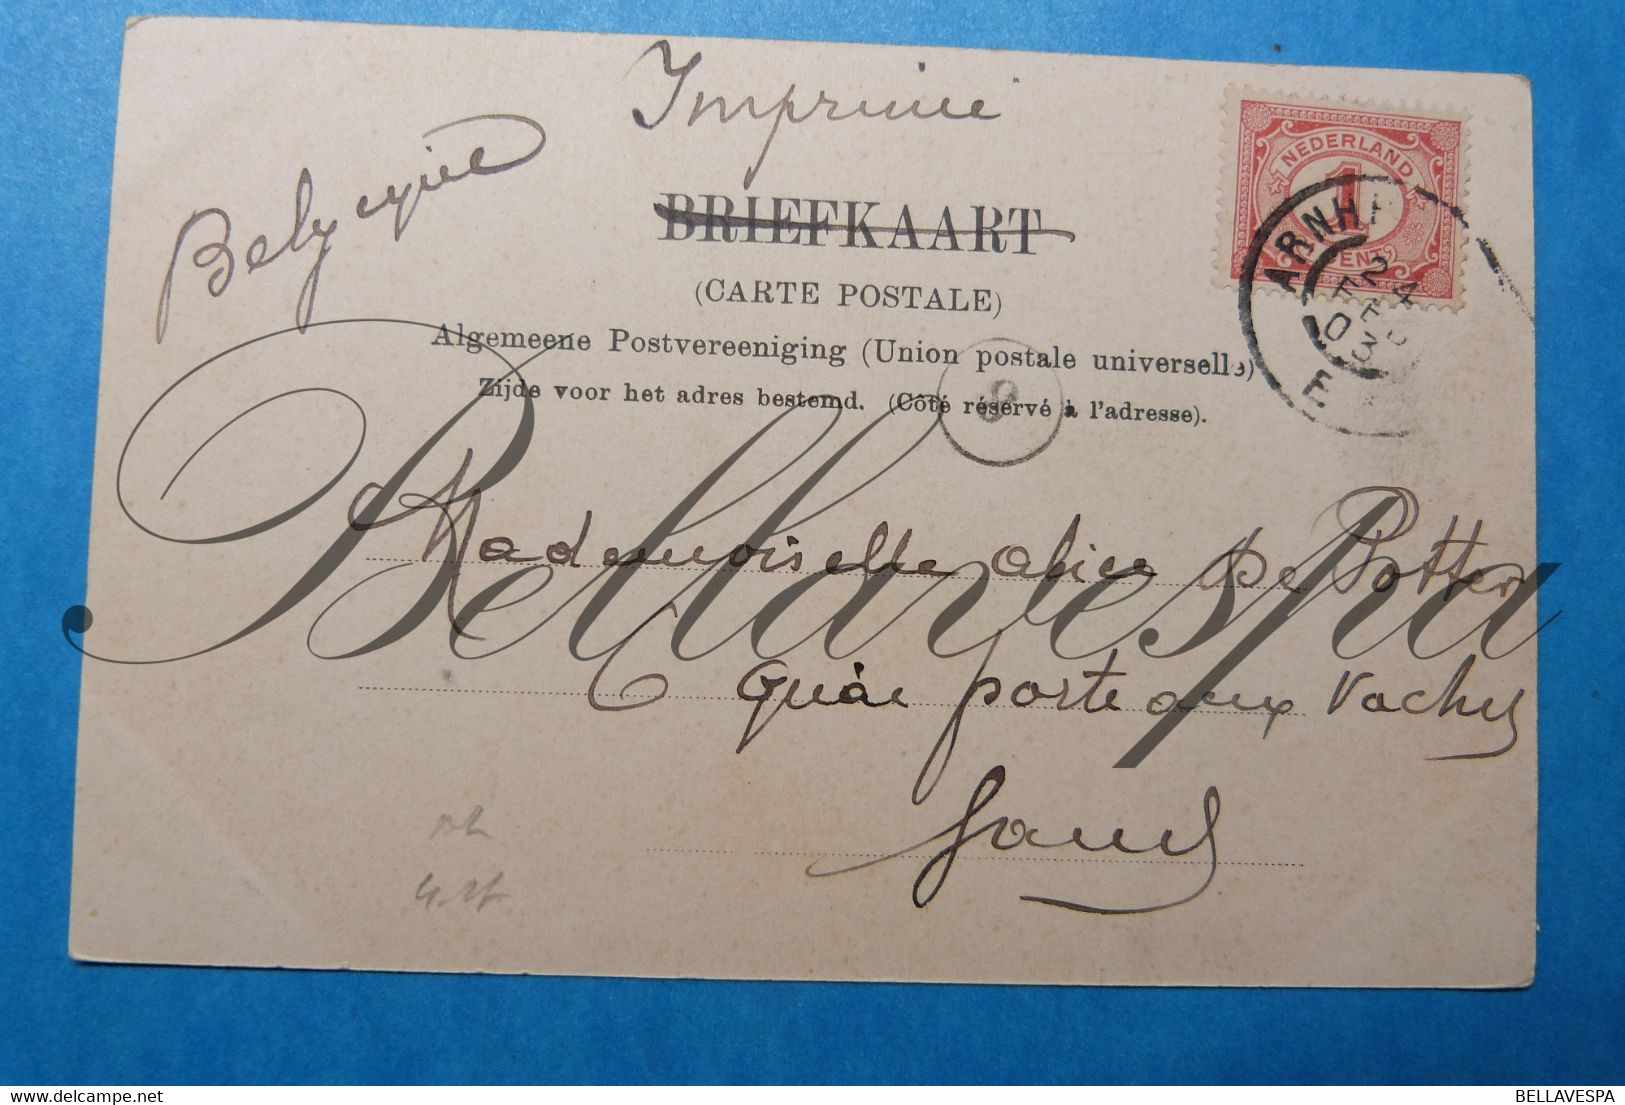 Imprimé
Belgique
BRIEFKAART
(CARTE POSTALE)
Algemeene Postvereeniging (Union postale universelle)
Zijde voor het adres bestemd. (Côté réservé à l'adresse).
NEDERLAND
1
CENT
ARNHE
8
Mademoiselle Alice De Potter
Quai porte aux Vaches
Gand
Bellavespa
BELLAVESPA